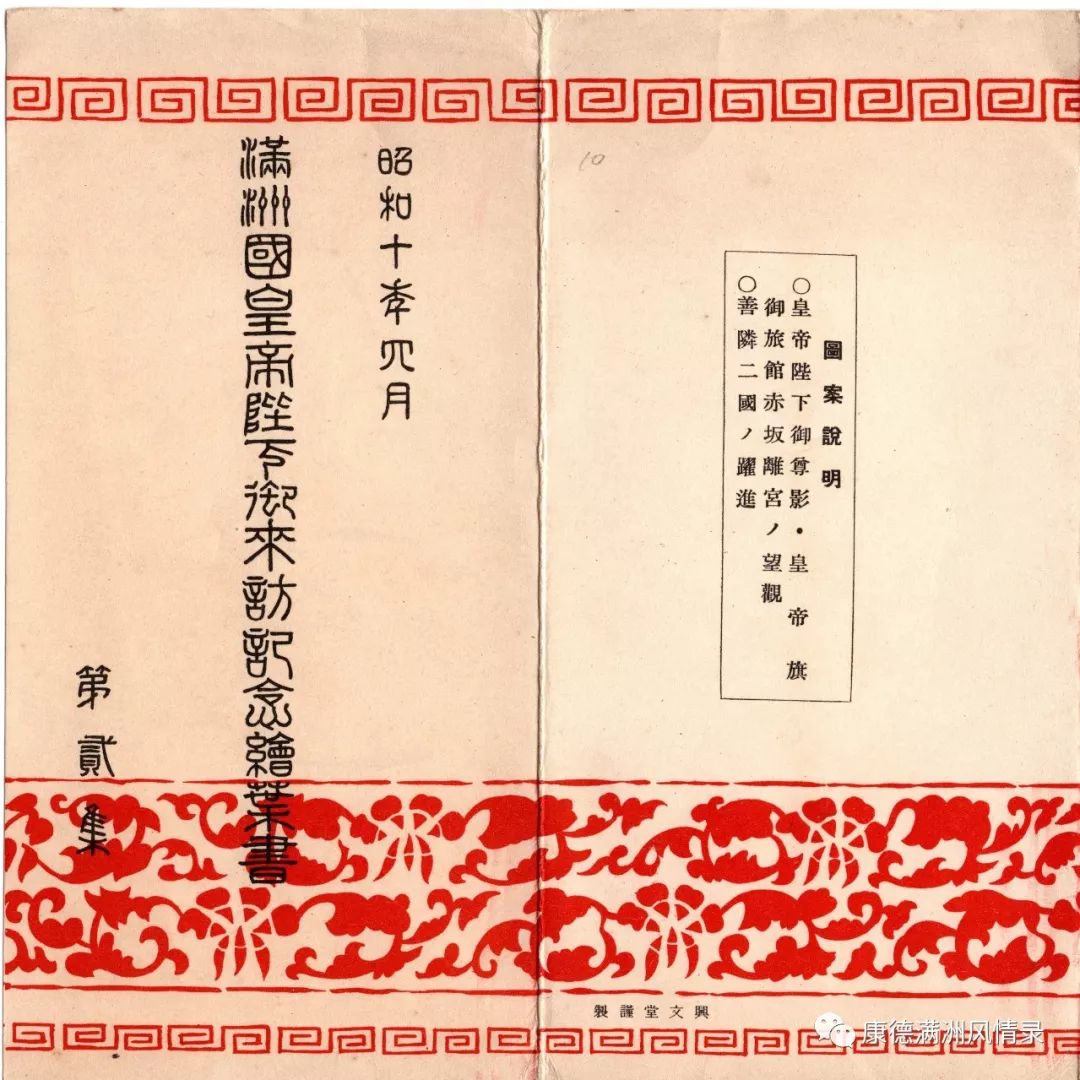 昭和十年四月
滿洲國皇帝陛下御來訪記念繪葉書
第貳集
10
圖案說明
○皇帝陛下御尊影・皇帝旗
御旅館赤坂離宮ノ望觀
○善隣二國ノ躍進
興文堂謹製
康德满洲风情录